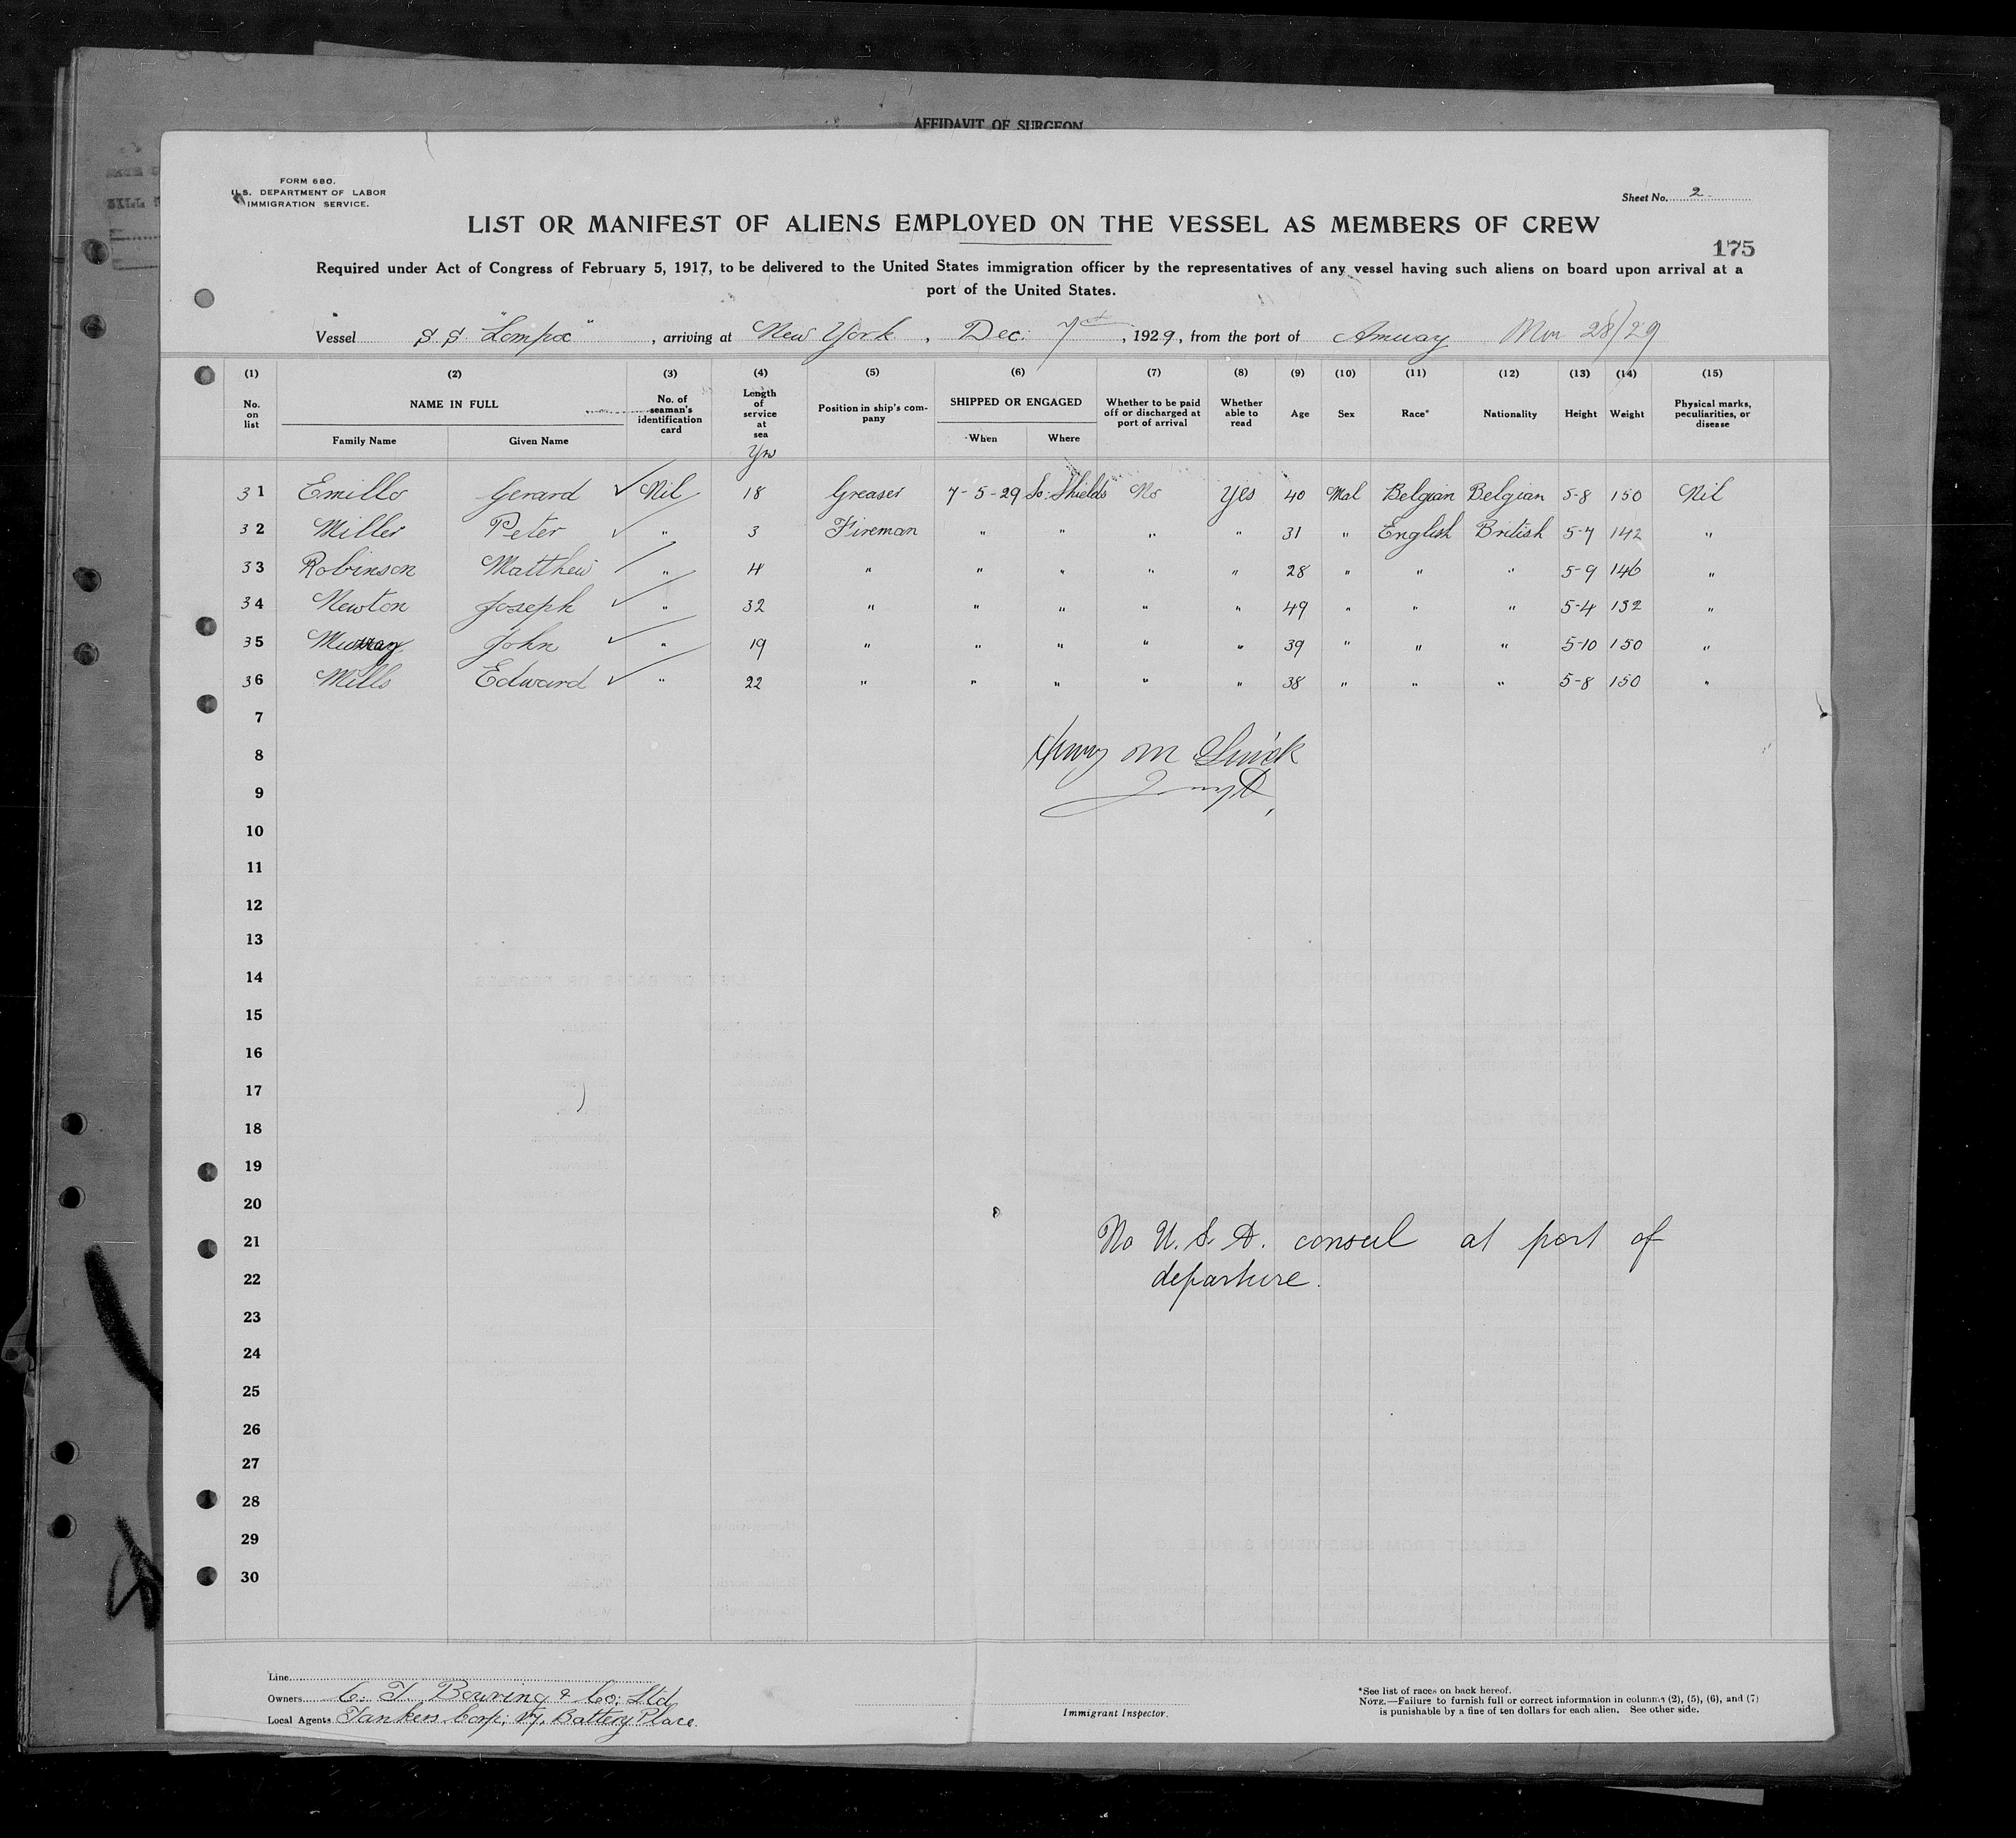 AFFIDAVIT OF SURGEON
FORM 680.
U.S. DEPARTMENT OF LABOR
IMMIGRATION SERVICE.
Sheet No. 2
LIST OR MANIFEST OF ALIENS EMPLOYED ON THE VESSEL AS MEMBERS OF CREW
175
Required under Act of Congress of February 5, 1917, to be delivered to the United States immigration officer by the representatives of any vessel having such aliens on board upon arrival at a
port of the United States.
Vessel S.S. "Lompoc", arriving at New York, Dec: 7th, 1929, from the port of Amuay 28/29
(1) (2) (3) (4) (5) (6) (7) (8) (9) (10) (11) (12) (13) (14) (15)
No. on list NAME IN FULL Family Name Given Name No. of seaman's identification card Length of service at sea Yrs Position in ship's company SHIPPED OR ENGAGED When Where Whether to be paid off or discharged at port of arrival Whether able to read Age Sex Race* Nationality Height Weight Physical marks, peculiarities, or disease
31 Emillo Gerard ✓ Nil 18 Greaser 7-5-29 So: Shields No Yes 40 Mal Belgian Belgian 5-8 150 Nil
32 Miller Peter ✓ " 3 Fireman " " " " 31 " English British 5-7 142 "
33 Robinson Matthew ✓ " 4 " " " " " 28 " " " 5-9 146 "
34 Newton Joseph ✓ " 32 " " " " " 49 " " " 5-4 132 "
35 Murray John ✓ " 19 " " " " " 39 " " " 5-10 150 "
36 Mills Edward ✓ " 22 " " " " " 38 " " " 5-8 150 "
7
8
9
10
11
12
13
14
15
16
17
18
19
20
21 No U.S.A. consul at port of
22 departure.
23
24
25
26
27
28
29
30
Line
Owners C. T. Bowring & Co; Ltd
Local Agents Tankers Corp; 17, Battery Place.
Immigrant Inspector.
*See list of races on back hereof.
NOTE.—Failure to furnish full or correct information in columns (2), (5), (6), and (7)
is punishable by a fine of ten dollars for each alien. See other side.